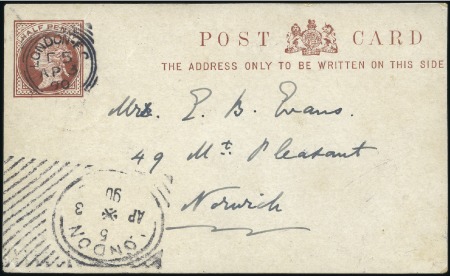 HALF PENNY
POST CARD
THE ADDRESS ONLY TO BE WRITTEN ON THIS SIDE
LONDON E.C
AP 5
90
Mrs. E. B. Evans.
49 Mt. Pleasant
Norwich
LONDON
5
AP
90
3